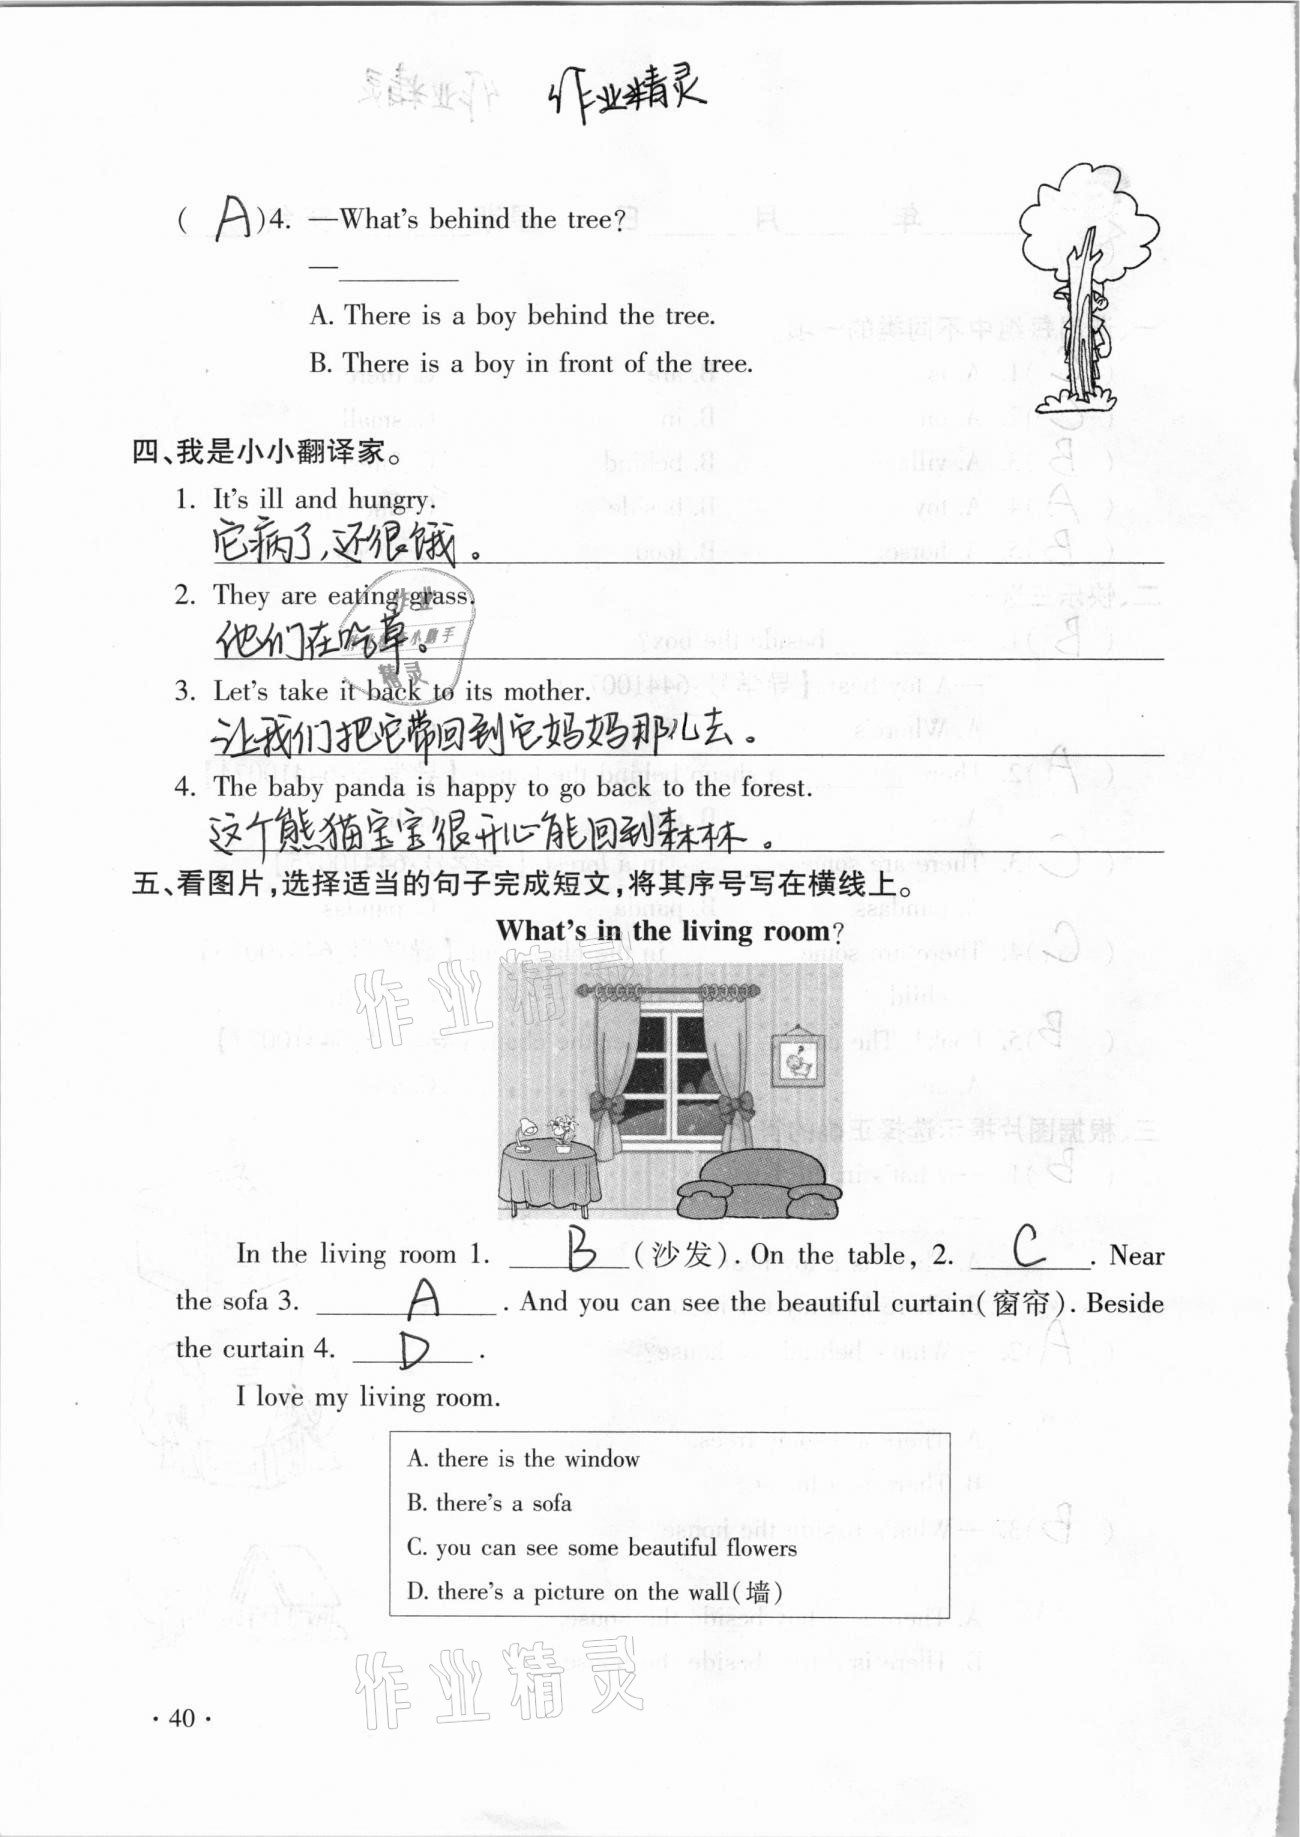 作业精灵
( A )4. —What's behind the tree?
—________
A. There is a boy behind the tree.
B. There is a boy in front of the tree.
四、我是小小翻译家。
1. It's ill and hungry.
它病了,还很饿。
2. They are eating grass.
他们在吃草。
3. Let's take it back to its mother.
让我们把它带回到它妈妈那儿去。
4. The baby panda is happy to go back to the forest.
这个熊猫宝宝很开心能回到森林。
五、看图片,选择适当的句子完成短文,将其序号写在横线上。
What's in the living room?
In the living room 1. B (沙发). On the table, 2. C . Near
the sofa 3. A . And you can see the beautiful curtain(窗帘). Beside
the curtain 4. D .
I love my living room.
A. there is the window
B. there's a sofa
C. you can see some beautiful flowers
D. there's a picture on the wall(墙)
作业精灵
· 40 ·